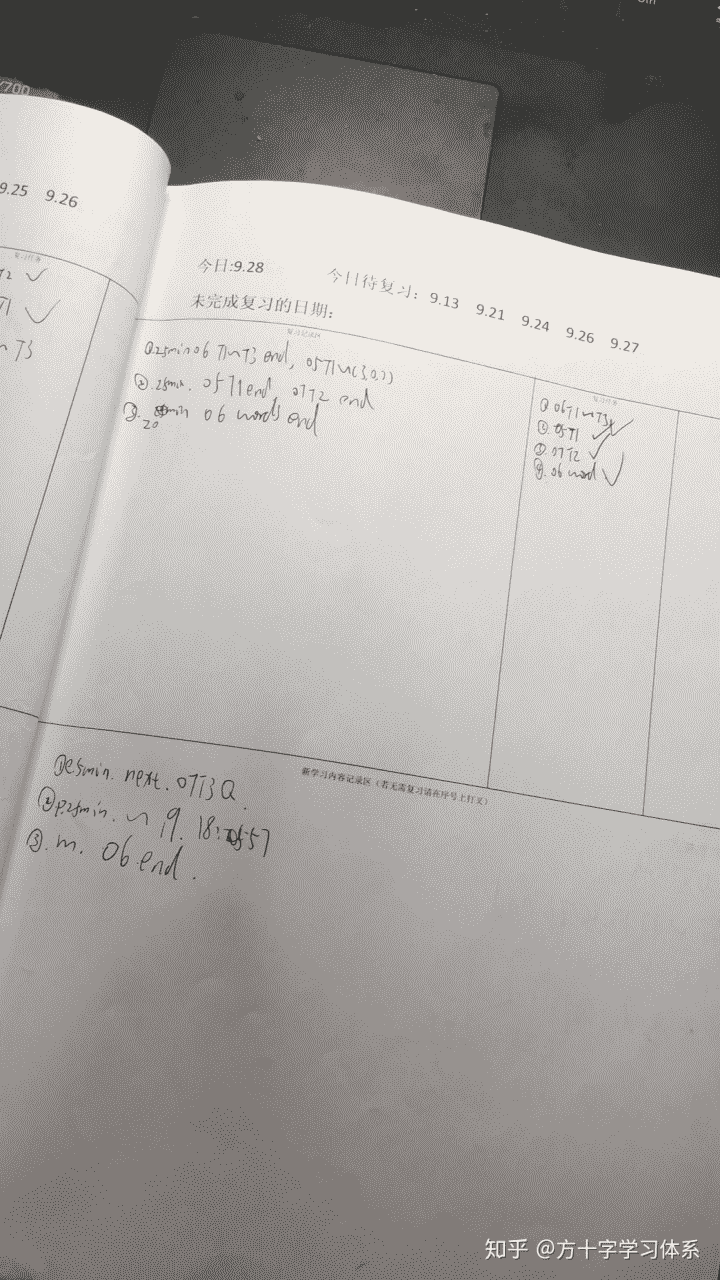 9.25 9.26
复习任务
T2 ✓
T1 ✓
~ T3
今日:9.28
今日待复习：9.13 9.21 9.24 9.26 9.27
未完成复习的日期：
复习记录区
①.25min 06 T1~T3 end, 05T1~(3,0,2)
②.25min. 05T1 end 07T2 end
③. 20min 06 words end
复习任务
① 06T1~T3 ✓
②. 05T1 ✓
③. 07T2 ✓
④. 06 word ✓
新学习内容记录区（若无需复习请在序号上打叉）
①25min. next. 07T3 Q.
②p.25min. ~ 19. 18:57
③. m. 06 end.
知乎 @方十字学习体系